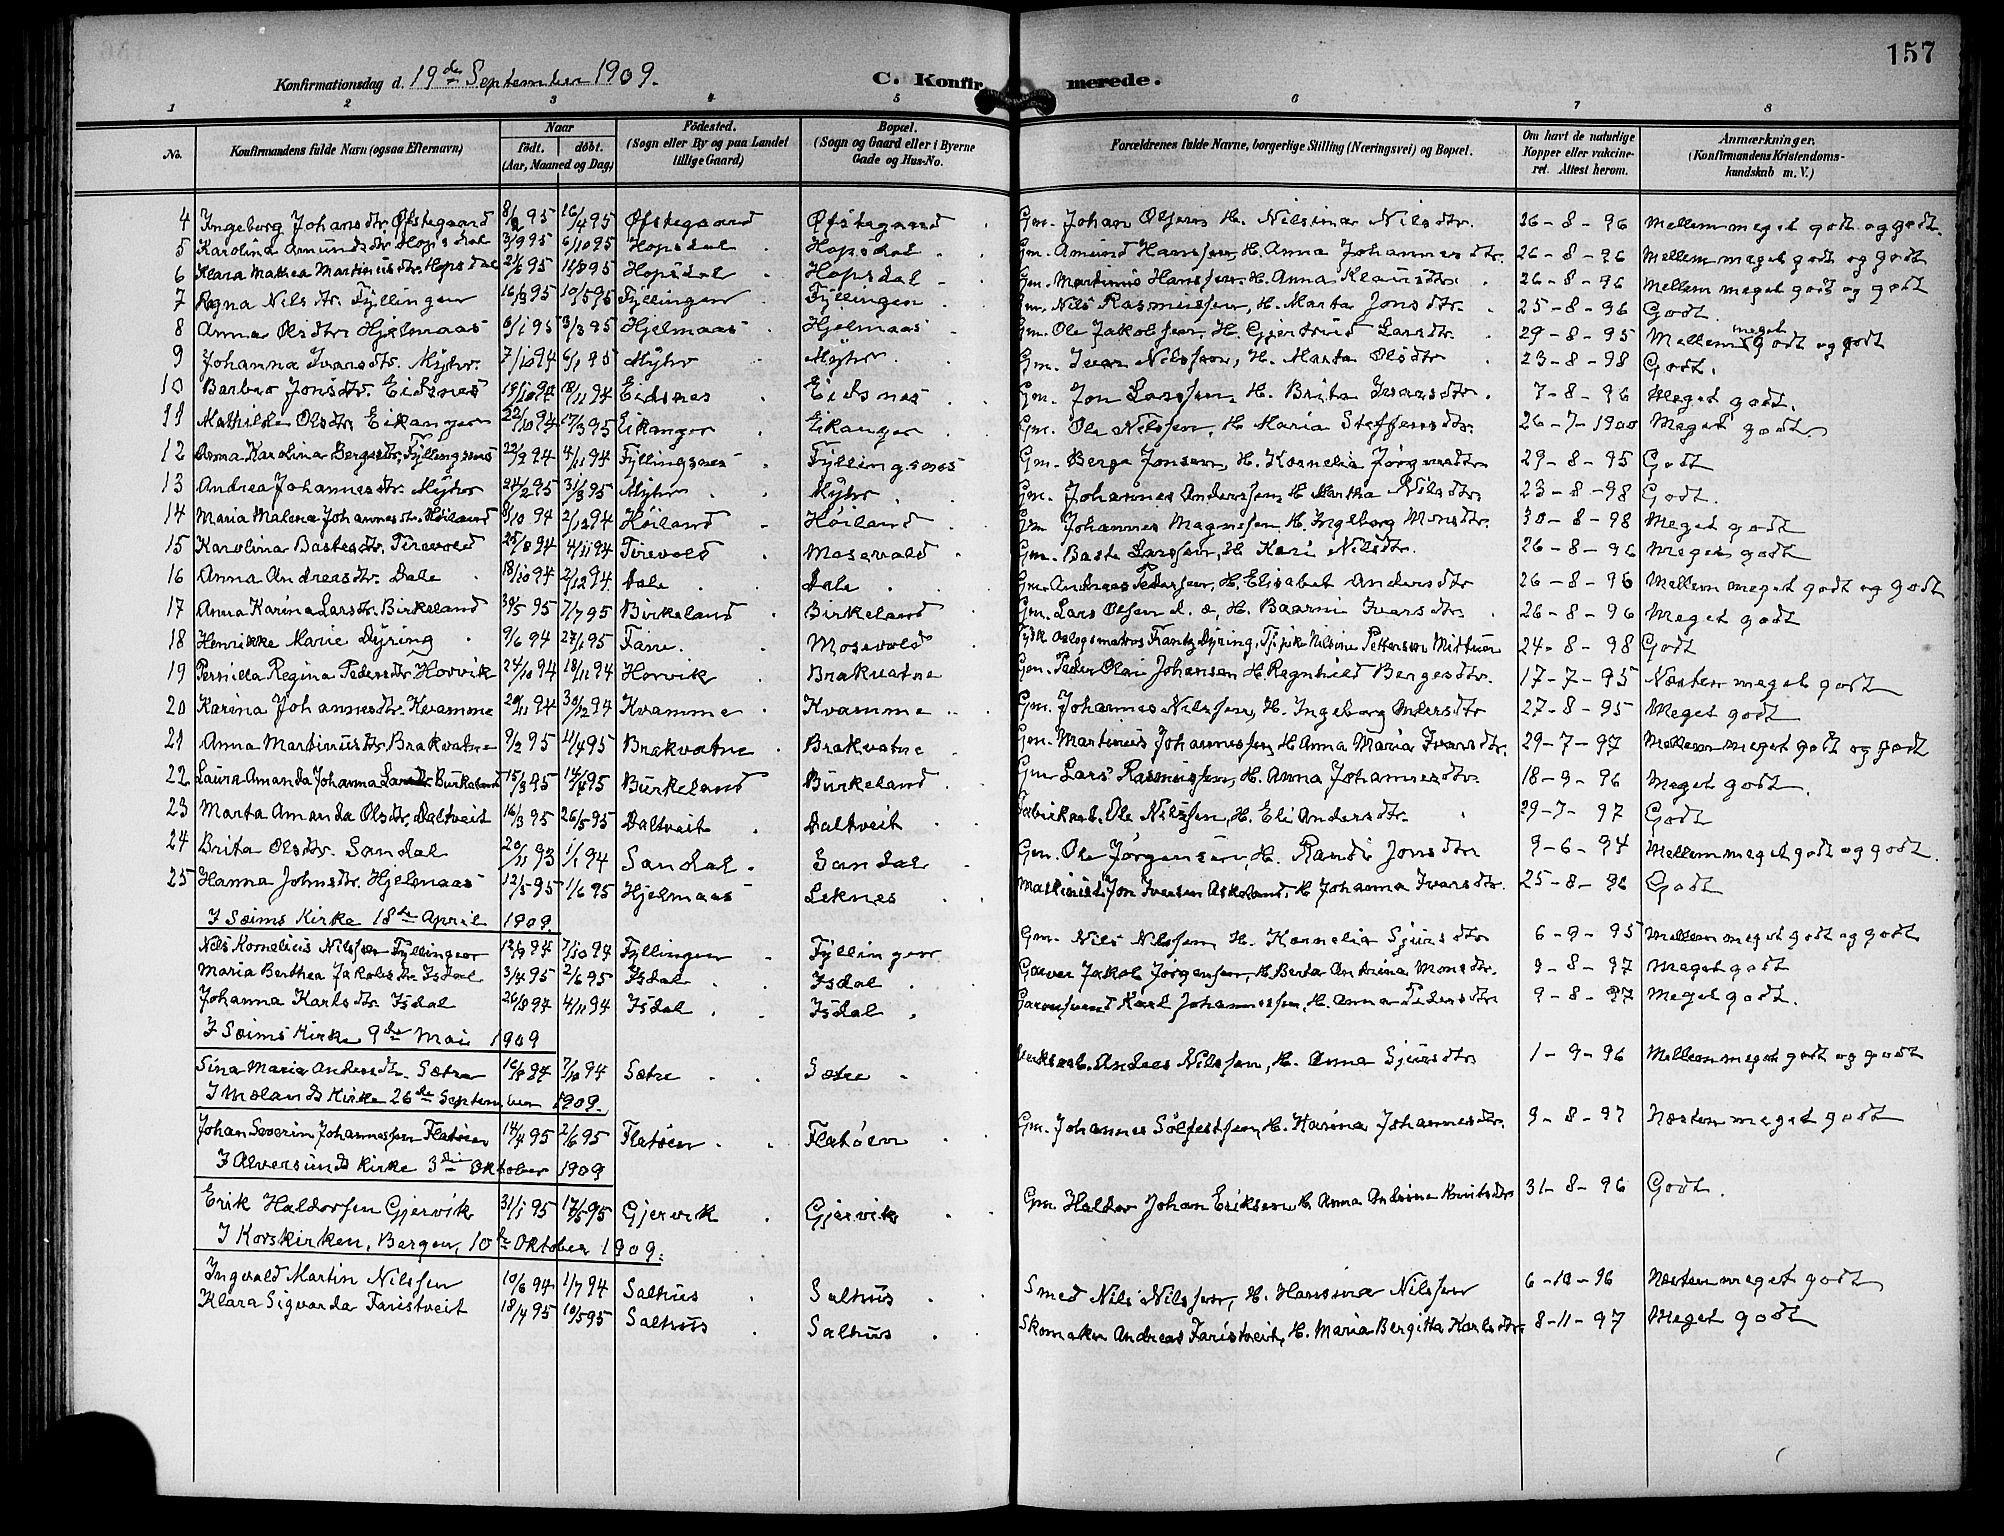 157
Konfirmationsdag d. 19de September 1909. C. Konfirmerede.
1 2 3 4 5 6 7 8
No. Konfirmandens fulde Navn (ogsaa Efternavn) Naar født. døbt. (Aar, Maaned og Dag) Fødested. (Sogn eller By og paa Landet tillige Gaard) Bopæl. (Sogn og Gaard eller i Byerne Gade og Hus-No. Forældrenes fulde Navne, borgerlige Stilling (Næringsvei) og Bopæl. Om havt de naturlige Kopper eller vakcineret. Attest herom. Anmærkninger. (Konfirmandens Kristendomskundskab m. V.)
4 Ingeborg Johansdtr. Øfstegaard 8/2 95 16/4 95 Øfstegaard Øfstegaard Gm. Johan Olsen H. Nilsina Nilsdtr. 26-8-96 Mellem meget godt og godt.
5 Karolina Amundsdtr. Hopsdal 3/9 95 6/10 95 Hopsdal Hopsdal Gm. Amund Hanssen, H. Anna Johannesdtr. 26-8-96 Mellem meget godt og godt
6 Klara Mathea Martinusdtr. Hopsdal 95 11/8 95 Hopsdal Hopsdal Gm. Martinus Hanssen. H. Anna Klausdtr. 26-8-96 Mellem meget godt og godt
7 Agna Nilsdtr. Fyllingen 16/3 95 10/5 95 Fyllingen Fyllingen Gm. Nils Rasmussen, H. Marta Jonsdtr. 25-8-96 Godt.
8 Anna Olsdtr. Hjelmaas 6/1 95 3/3 95 Hjelmaas Hjelmaas Gm. Ole Jakobsen, H. Gjertrud Larsdtr. 29-8-95 Mellem meget godt og godt
9 Johanna Ivarsdtr. Myhr. 7/10 94 6/1 95 Myhr Myhr. Gm. Ivar Nilssen, H. Marta Olsdtr 23-8-98 Godt.
10 Barbro Jonsdtr. Eidsnes 19/10 94 18/11 94 Eidsnes Eidsnes Gm. Jon Larssen, H. Brita Ivarsdtr. 7-8-96 Meget godt.
11 Mathilde Olsdtr. Eikanger 22/10 94 17/3 95 Eikanger Eikanger Gm. Ole Nilssen, H. Maria Steffensdtr. 26-7-1900 Meget godt.
12 Anna Karolina Bergesdtr. Fyllingsnes 22/9 94 4/11 94 Fyllingsnes Fyllingsnes Gm. Berge Jonsen, H. Kornelia Jørgensdtr. 29-8-95 Godt
13 Andrea Johannesdtr. Myhr 24/2 95 31/3 95 Myhr Myhr Gm. Johannes Anderssen, H. Martha Nilsdtr. 23-8-98 Godt.
14 Maria Malena Johannesdtr. Høiland 8/10 94 2/12 94 Høiland Høiland Gm Johannes Magnssen H. Ingeborg Monsdtr. 30-8-98 Meget godt
15 Karolina Bastesdtr. Tirevold 25/8 94 4/11 94 Tirevold Mosevold Gm. Baste Larssen, H. Kari Nilsdtr. 26-8-96 Meget godt
16 Anna Andreasdtr. Dale 18/10 94 2/12 94. Dale Dale Gm. Andreas Pedersen, H. Elisabet Andersdtr 26-8-96 Mellem meget godt og godt
17 Anna Karina Larsdtr. Birkeland 30/5 95 7/7 95 Birkeland Birkeland Gm. Lars Olsen d. e, H. Baarni Ivarsdtr. 26-8-96 Meget godt
18 Henrikke Marie Dyring 9/6 94 27/1 95 Mosevold Frantz Dyring, Nilsine Pettersen 24-8-98 Godt
19 Pernilla Regina Pedersdtr Horvik 24/10 94 18/11 94 Horvik Brakvatne Gm. Peder Olai Johansen H. Ragnhild Bergesdtr. 17-7-95 Næsten meget godt
20 Karina Johannesdtr. Kvamme 20/11 94 30/12 94 Kvamme Kvamme Gm. Johannes Nilssen, H. Ingeborg Andersdtr 27-8-95 Meget godt
21 Anna Martinusdtr. Brakvatne 9/2 95 4/4 95 Brakvatne Brakvatne Gm. Martinus Johannessen, H Anna Maria Ivarsdtr. 29-7-97 Mellem meget godt og godt
22 Laura Amanda Johanna Larsdtr. Burkeland 15/3 95 14/4 95 Burkeland Burkeland Gm Lars Rasmussen, H. Anna Johannesdtr. 18-9-96 Meget godt.
23 Marta Amanda Olsdtr. Daltveit 16/3 95 26/5 95 Daltveit Daltveit Fabrikarb. Ole Nilssen, H. Eli Andersdtr. 29-7-97 Godt
24 Brita Olsdtr. Sandal 20/11 93 1/1 94 Sandal Sandal Gm. Ole Jørgensen, H. Randi Jonsdtr 9-6-94 Mellem meget godt og godt.
25 Hanna Johnsdtr. Hjelmaas 12/5 95 1/6 95 Hjelmaas Leknes Maskinist Jon Iversen Askeland, H. Johanna Ivarsdtr. 25-8-96 Godt
I Seims Kirke 18de April 1909
Nils Kornelius Nilssen Fyllingen 12/9 94 7/10 94 Fyllingen Fyllingen Gm. Nils Nilssen, H. Kornelia Sjursdtr 6-9-95 Mellem meget godt og godt
Maria Berthea Jakobsdtr. Isdal 3/4 95 2/6 95 Isdal Isdal Garver Jakob Jørgensen, H. Berta Antrina Monsdtr. 9-8-97 Meget godt
Johanna Karlsdtr. Isdal 26/8 94 4/11 94 Isdal Isdal Garversvend Karl Johannessen, H. Anna Pedersdtr 9-8-97 Meget godt.
I Seims Kirke 9de Mai 1909
Sina Maria Andersdtr. Sætre 94 7/10 94 Sætre Sætre Anders Nilssen, H. Anna Sjursdtr 1-9-96 Mellem meget godt og godt
I Molands Kirke 26de September 1909.
Johan Severin Johannessen Flatøen 14/4 95 2/6 95 Flatøen Flatøen Gm. Johannes Sølfestsen, H. Karina Johannesdtr. 9-8-97 Næsten meget godt
I Alversunds Kirke 3die Oktober 1909
Erik Haldorsen Gjervik 31/1 95 17/5 95 Gjervik Gjervik Gm. Haldor Johan Eriksen H. Anna Andrine Knutsdtr 31-8-96 Godt.
I Korskirken, Bergen, 10de Oktober 1909.
Ingvald Martin Nilssen 10/6 94 1/7 94 Salhus Salhus Smed Nils Nilssen, H. Hansina Nilssen 6-10-96 Næsten meget godt
Klara Sigvarda Faristveit 18/4 95 10/5 95 Salhus Salhus Skomaker Andreas Faristveit, H. Maria Bergitta Karlsdtr. 8-11-97 Meget godt